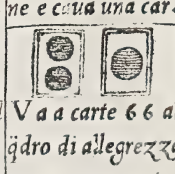 ne e caua una car
V a a carte 66 a
q̃dro di allegrezze